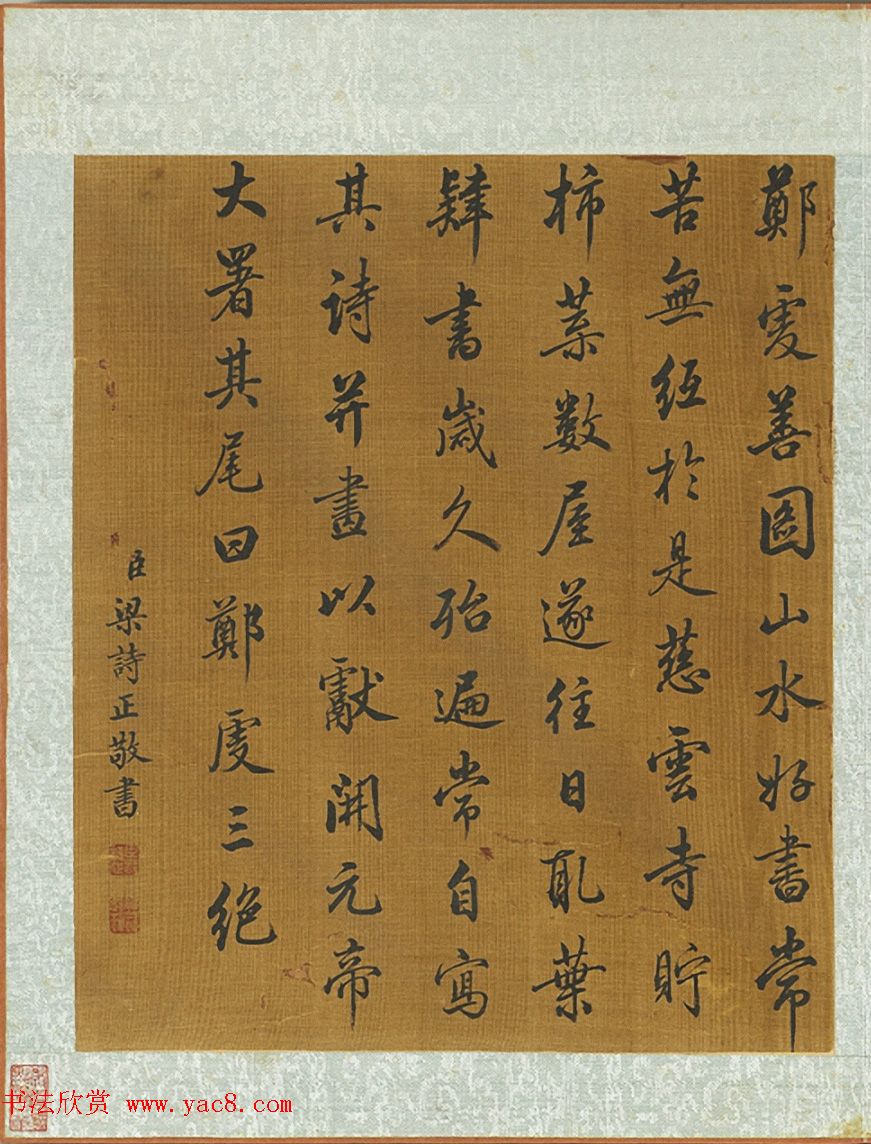 鄭虔善圖山水好書常
苦無紙於是慈雲寺貯
柿葉數屋遂往日取葉
肄書歲久殆遍常自寫
其詩并畫以獻開元帝
大署其尾曰鄭虔三絶
臣梁詩正敬書
书法欣赏 www.yac8.com